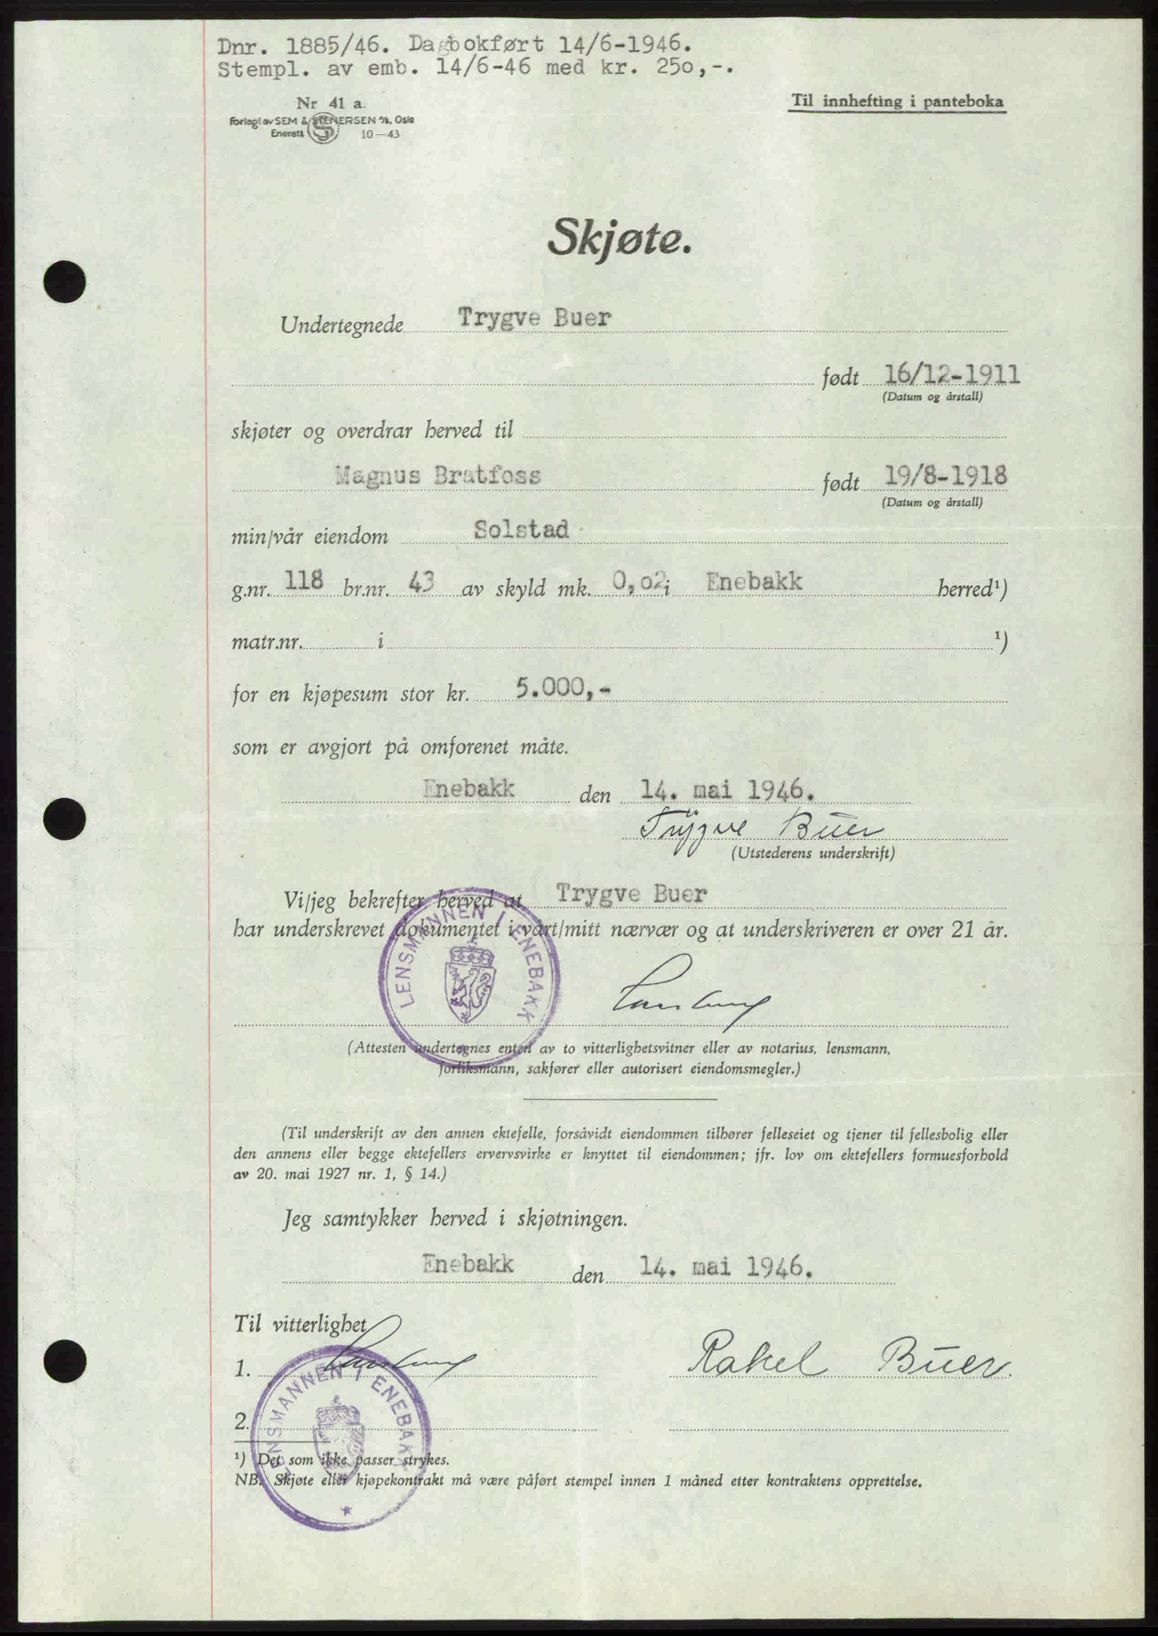 Dnr. 1885/46. Dagbokført 14/6-1946.
Stempl. av emb. 14/6-46 med kr. 25o,-.
Nr 41 a.
Forlagt av SEM & STENERSEN A/S, Oslo
Enerett S 10—43
Til innhefting i panteboka
Skjøte.
Undertegnede Trygve Buer
født 16/12-1911
(Datum og årstall)
skjøter og overdrar herved til
Magnus Bratfoss født 19/8-1918
(Datum og årstall)
min/vår eiendom Solstad
g.nr. 118 br.nr. 43 av skyld mk. 0,o2 i Enebakk herred¹)
matr.nr. i ¹)
for en kjøpesum stor kr. 5.000,-
som er avgjort på omforenet måte.
Enebakk den 14. mai 1946.
Trygve Buer
(Utstederens underskrift)
Vi/jeg bekrefter herved at Trygve Buer
har underskrevet dokumentet i vårt/mitt nærvær og at underskriveren er over 21 år.
LENSMANNEN I ENEBAKK
(Attesten undertegnes enten av to vitterlighetsvitner eller av notarius, lensmann,
forliksmann, sakfører eller autorisert eiendomsmegler.)
(Til underskrift av den annen ektefelle, forsåvidt eiendommen tilhører felleseiet og tjener til fellesbolig eller
den annens eller begge ektefellers ervervsvirke er knyttet til eiendommen; jfr. lov om ektefellers formuesforhold
av 20. mai 1927 nr. 1, § 14.)
Jeg samtykker herved i skjøtningen.
Enebakk den 14. mai 1946.
Til vitterlighet
1. Rakel Buer.
2.
LENSMANNEN I ENEBAKK
¹) Det som ikke passer strykes.
NB. Skjøte eller kjøpekontrakt må være påført stempel innen 1 måned etter kontraktens opprettelse.